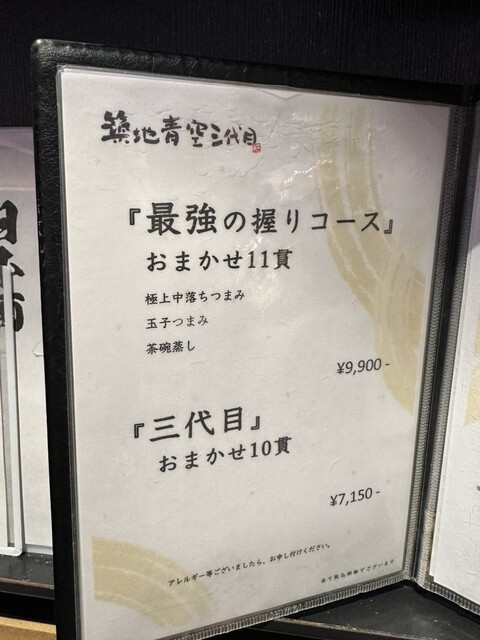 築地青空三代目
『最強の握りコース』
おまかせ11貫
極上中落ちつまみ
玉子つまみ
茶碗蒸し
¥9,900-
『三代目』
おまかせ10貫
¥7,150-
アレルギー等ございましたら、お申し付けください。
全て税込価格でございます